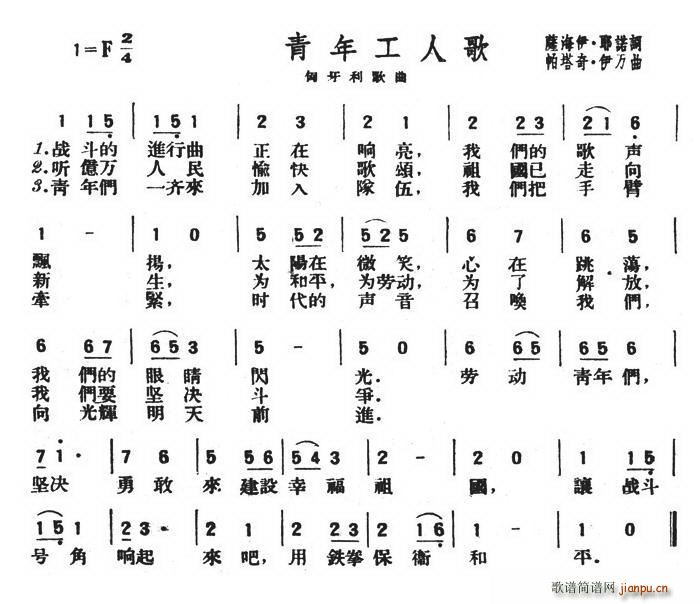 1=F 2/4 青年工人歌 薩海伊·耶諾詞
匈牙利歌曲 帕塔奇·伊万曲
1 15 | 15 1 | 2 3 | 2 1 | 2 23 | 21 6 |
1.战斗的 進行曲 正在 响亮, 我們的 歌声
2.听億万 人民 愉快 歌頌, 祖國已 走向
3.青年們 一齐來 加入 隊伍, 我們把 手臂
1 - | 1 0 | 5 52 | 52 5 | 6 7 | 6 5 |
飄 揚, 太陽在 微笑, 心在 跳蕩,
新 生, 为和平, 为劳动, 为了 解放,
牽 緊, 时代的 声音 召喚 我們,
6 67 | 65 3 | 5 - | 5 0 | 6 65 | 65 5 |
我們的 眼睛 閃 光. 劳动 青年們,
我們要 坚决 斗 爭.
向光輝 明天 前 進.
71· | 7 6 | 5 56 | 54 3 | 2 - | 2 0 | 1 15 |
坚决 勇敢 來建設 幸福 祖 國, 讓战斗
15 1 | 23· | 2 1 | 2 23 | 2 16 | 1 - | 1 0 ‖
号角 响起 來吧, 用鉄拳 保衛 和 平.
歌谱简谱网
jianpu.cn